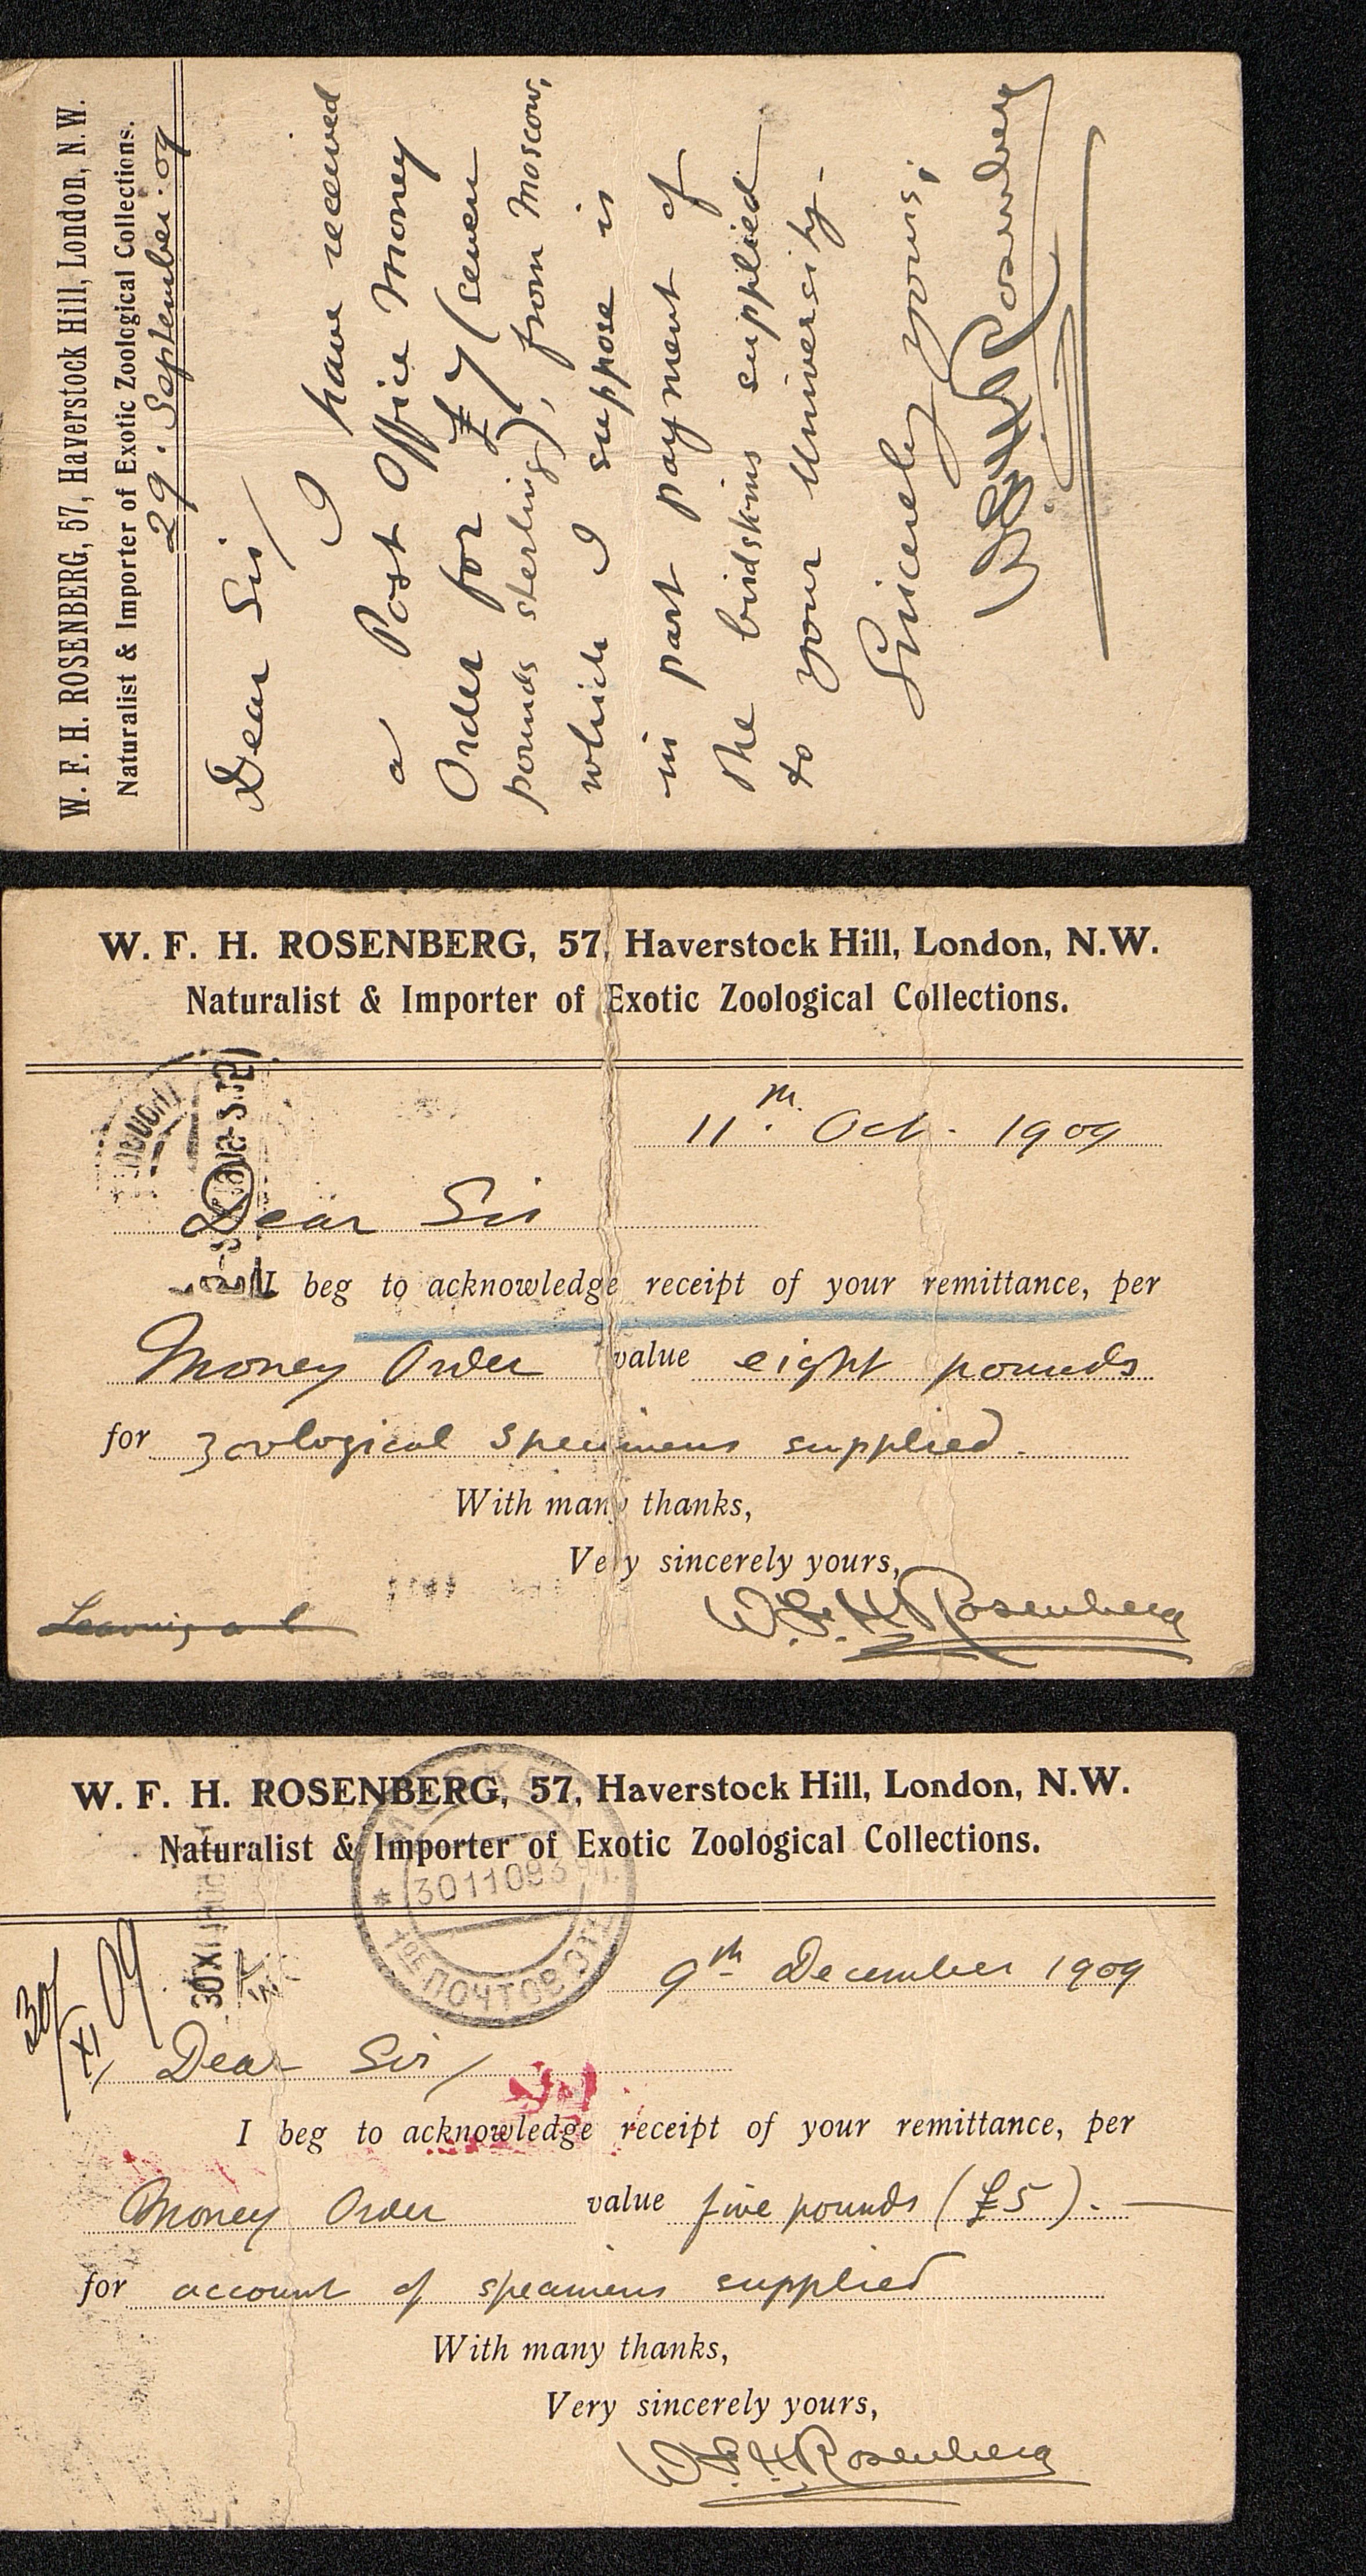 W. F. H. ROSENBERG, 57, Haverstock Hill, London, N.W.
Naturalist & Importer of Exotic Zoological Collections.
29. September. 09
Dear Sir/
I have received
a Post Office Money
Order for £7 (seven
pounds sterling), from Moscow,
which I suppose is
in part payment of
the birdskins supplied
to your University.
Sincerely yours,
W.F.H. Rosenberg
W. F. H. ROSENBERG, 57, Haverstock Hill, London, N.W.
Naturalist & Importer of Exotic Zoological Collections.
11th. Oct. 1909
Dear Sir
I beg to acknowledge receipt of your remittance, per
Money Order value eight pounds
for zoological specimens supplied.
With many thanks,
Very sincerely yours,
W. F. H. Rosenberg
W. F. H. ROSENBERG, 57, Haverstock Hill, London, N.W.
Naturalist & Importer of Exotic Zoological Collections.
30/XI 09
9th December 1909
Dear Sir/
I beg to acknowledge receipt of your remittance, per
Money Order value five pounds (£5).
for account of specimens supplied
With many thanks,
Very sincerely yours,
W. F. H. Rosenberg